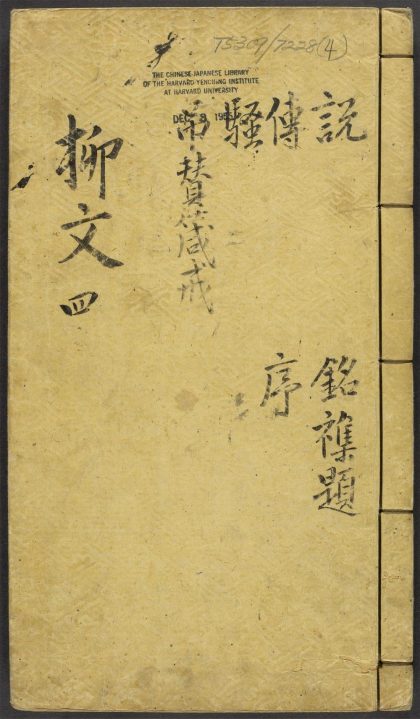 T5309/7228(4)
THE CHINESE-JAPANESE LIBRARY
OF THE HARVARD-YENCHING INSTITUTE
AT HARVARD UNIVERSITY
說
傳
騷
吊贊箴戒
銘襍題
序
柳文 四